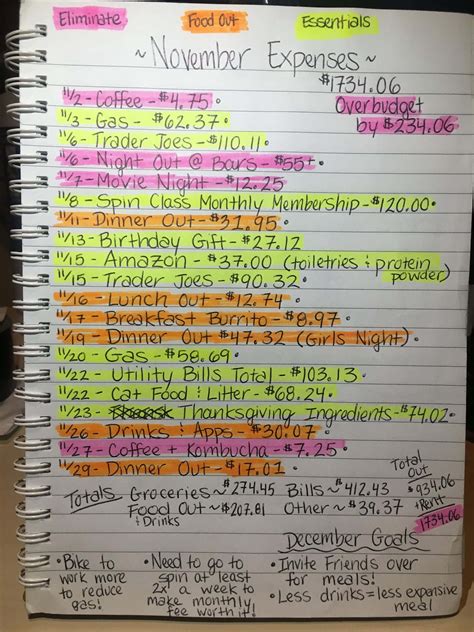 Eliminate Food Out Essentials
~November Expenses~
$1734.06
Overbudget
by $234.06
11/2 - Coffee - $4.75
11/3 - Gas - $62.37
11/6 - Trader Joes - $110.11
11/6 - Night Out @ Bars - $55+
11/7 - Movie Night - $12.25
11/8 - Spin Class Monthly Membership - $120.00
11/11 - Dinner Out - $31.95
11/13 - Birthday Gift - $27.12
11/15 - Amazon - $37.00 (toiletries + protein
powder)
11/15 - Trader Joes - $90.32
11/16 - Lunch Out - $12.74
11/17 - Breakfast Burrito - $8.97
11/19 - Dinner Out - $47.32 (Girls Night)
11/20 - Gas - $58.69
11/22 - Utility Bills Total - $103.13
11/22 - Cat Food + Litter - $68.24
11/23 - Thanksgiving Ingredients - $74.02
11/26 - Drinks + Apps - $30.07
11/27 - Coffee + Kombucha - $7.25
11/29 - Dinner Out - $17.01
Totals Groceries ~ $274.45 Bills ~ $412.43
Food Out ~ $207.81 Other ~ $39.37
+ Drinks
Total
Out
$934.06
+ Rent
1734.06
December Goals
• Bike to
work more
to reduce
gas!
• Need to go to
spin at least
2x a week to
make monthly
fee worth it!
• Invite Friends over
for meals!
• Less drinks = less expensive
meal